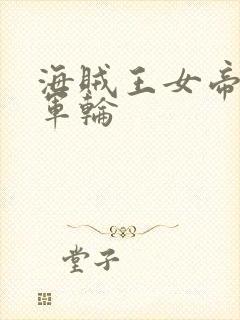 海賊王女帝
軍輪
堂子